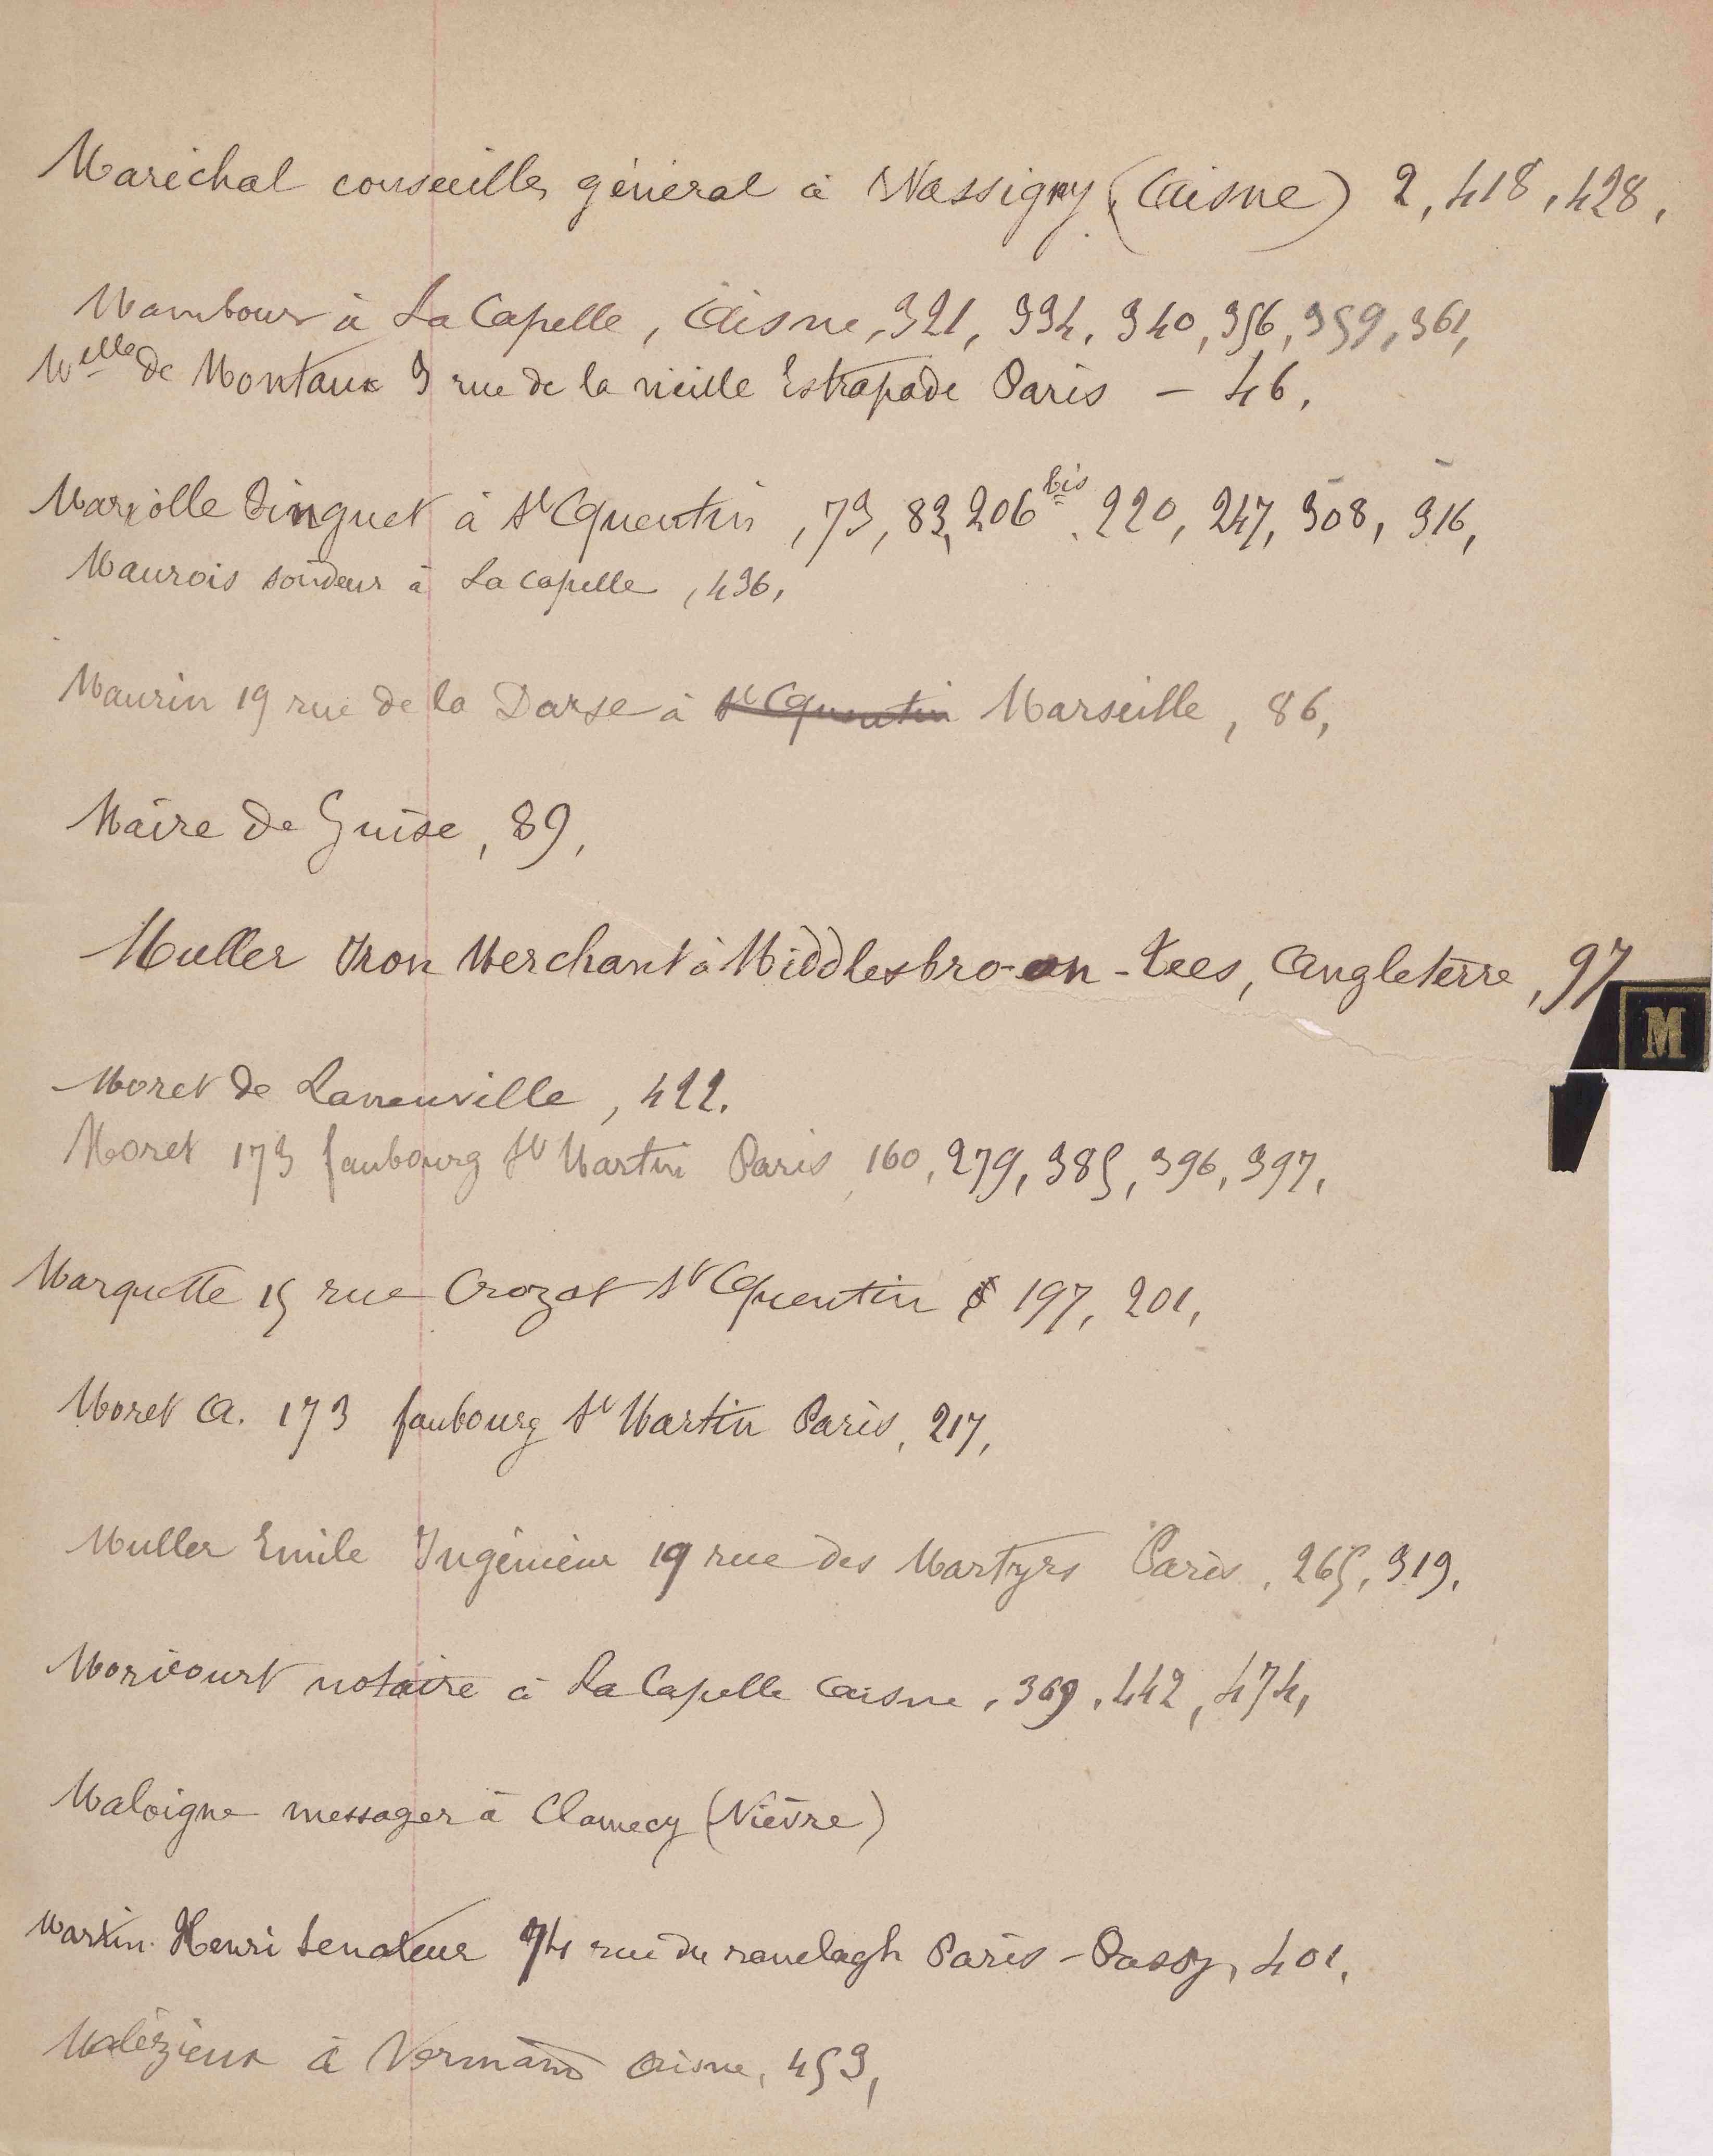 Maréchal conseiller général à Wassigny (Aisne) 2, 418, 428,
Mambour à La Capelle, Aisne, 321, 334, 340, 356, 359, 361,
Melle de Montaux 3 rue de la vieille Estrapade Paris - 46,
Mariolle Pinguet à St Quentin, 73, 83, 206 bis, 220, 247, 308, 316,
Maurois sondeur à La Capelle, 436,
Maurin 19 rue de la Darse à St Quentin Marseille, 86,
Maire de Guise, 89,
Muller Iron Merchant à Middlesbro-on-tees, Angleterre, 97
M
Moret de Laneuville, 422.
Moret 173 faubourg St Martin Paris, 160, 279, 385, 396, 397,
Marquette 15 rue Crozat St Quentin 197, 201,
Moret A. 173 faubourg St Martin Paris, 217,
Muller Emile Ingénieur 19 rue des Martyrs Paris, 265, 319,
Moricourt notaire à La Capelle Aisne, 369, 442, 474,
Maloigne messager à Clamecy (Nièvre)
Martin Henri Senateur 74 rue du ranelagh Paris-Passy, 401,
Malézieux à Vermand Aisne, 453,